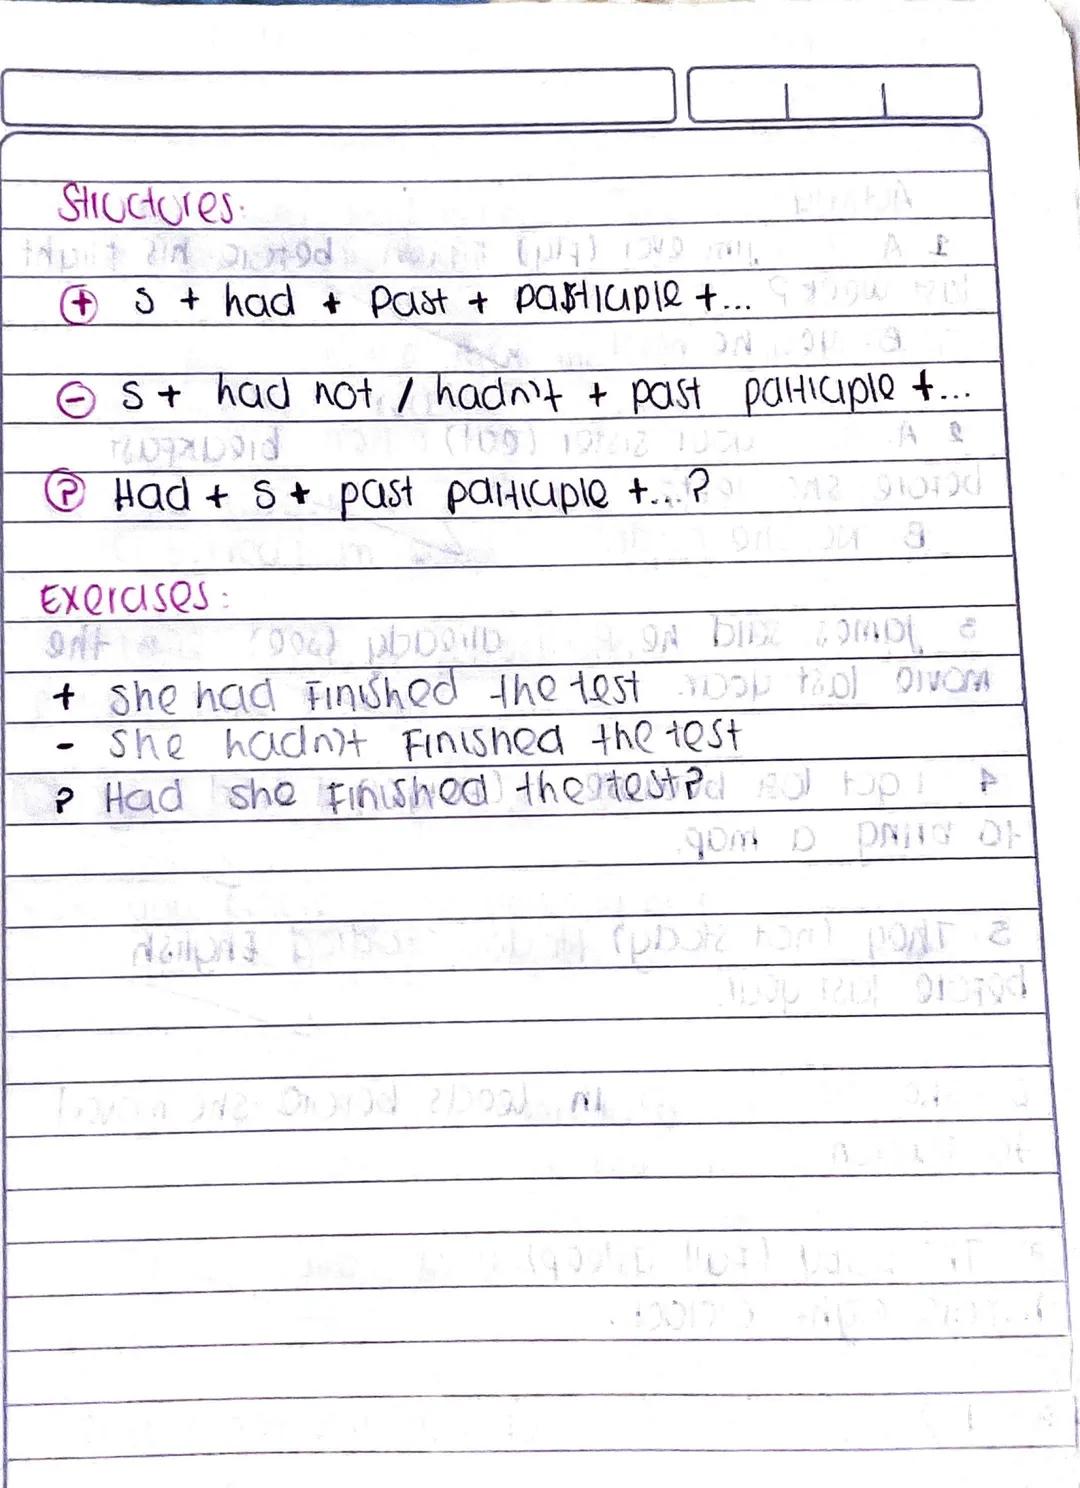 Structures:
+ S + had + Past + participle +...
- S + had not / hadn't + past participle +...
? Had + S + past participle +...?
Exercises:
+ she had Finished the test
- She hadn't Finished the test
? Had she Finished the test?